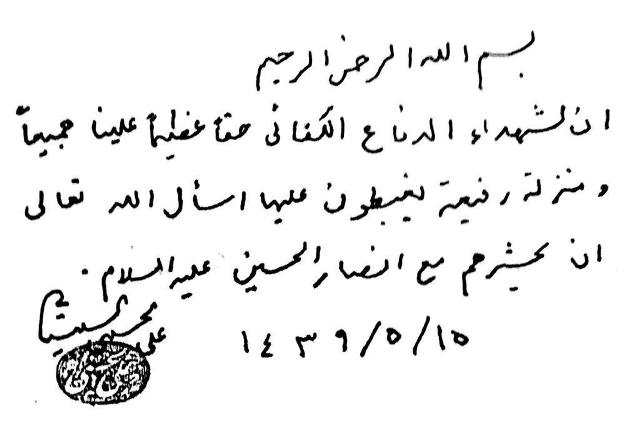 بسم الله الرحمن الرحيم
ان لشهداء الدفاع الكفائي حقاً عظيماً علينا جميعاً
و منزلة رفيعة يغبطون عليها اسأل الله تعالى
ان يحشرهم مع انصار الحسين عليه السلام .
١٤٣٩/٥/١٥
علي الحسيني السيستاني